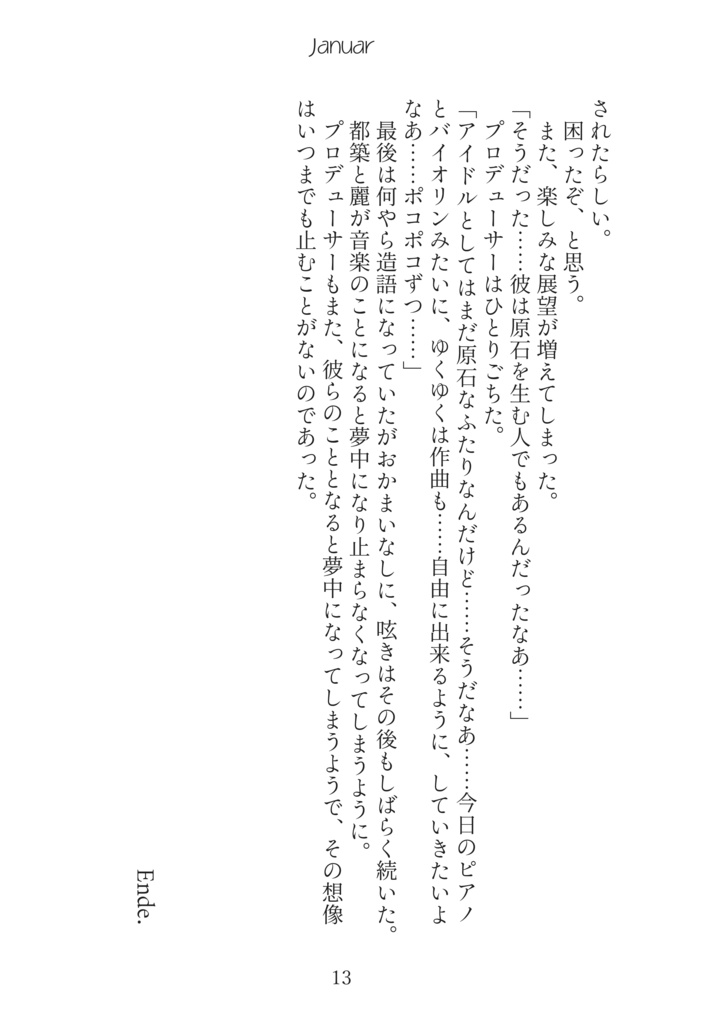 Januar
されたらしい。
困ったぞ、と思う。
また、楽しみな展望が増えてしまった。
「そうだった……彼は原石を生む人でもあるんだったなあ……」
プロデューサーはひとりごちた。
「アイドルとしてはまだ原石なふたりなんだけど……そうだなあ……今日のピアノ
とバイオリンみたいに、ゆくゆくは作曲も……自由に出来るように、していきたいよ
なあ……ポコポコずつ……」
最後は何やら造語になっていたがおかまいなしに、呟きはその後もしばらく続いた。
都築と麗が音楽のことになると夢中になり止まらなくなってしまうように。
プロデューサーもまた、彼らのこととなると夢中になってしまうようで、その想像
はいつまでも止むことがないのであった。
Ende.
13